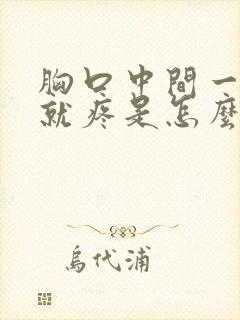 胸口中間一
就疼是怎麼
烏代浦